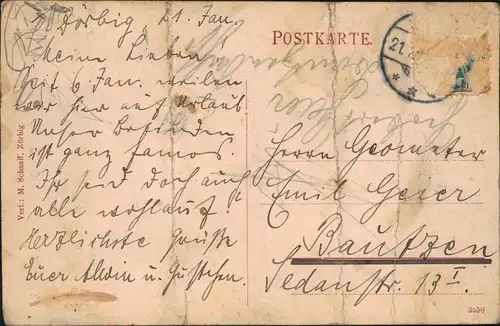 Zörbig, 21. Jan.
Meine Lieben!
Seit 6. Jan. weilen
wir hier auf Urlaub
Unser Befinden
ist ganz famos.
Ihr seid doch auch
alle wohlauf?
Herzlichste Grüße
Euer Alwin u. Gustchen.
Verl.: M. Schaaff, Zörbig
POSTKARTE.
21.
Herrn Geometer
Emil Geier
Bautzen
Sedanstr. 13 I.
3558